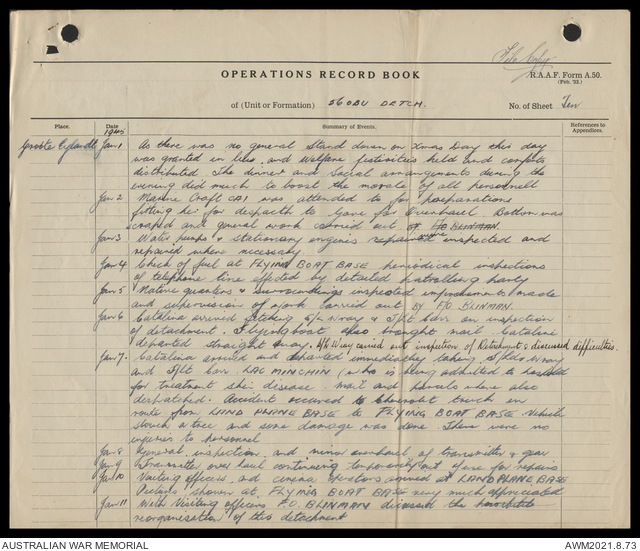 File Copy
OPERATIONS RECORD BOOK
R.A.A.F. Form A.50.
(Feb. '33.)
of (Unit or Formation) 56 OBU DETCH.
No. of Sheet Ten
Place. Date Summary of Events. References to Appendices.
1945
Groote Eylandt Jan 1 As there was no general stand down on Xmas Day this day
was granted in lieu, and welfare festivities held and comforts
distributed. The dinner and social arrangements during the
evening did much to boost the morale of all personnel
Jan 2 Marine Craft was attended to for preparations
fitting her for despatch to Gove for overhaul. Bottom was
scraped and general work carried out F/O BLINMAN.
Jan 3 Water pumps & stationary engines were inspected and
repaired where necessary
Jan 4 Check of fuel at FLYING BOAT BASE periodical inspections
of telephone line effected by detailed patrolling party
Jan 5 Native quarters & surroundings inspected improvements made
and supervision of work carried out by F/O BLINMAN.
Jan 6 Catalina arrived S/L Wray & F/Lt Carr on inspection
of detachment. Flying boat also brought mail. Catalina
departed straight away. S/L Wray carried out inspection of Detachment & discussed difficulties.
Jan 7 Catalina arrived and departed immediately taking S/Ldr Wray
and F/Lt Carr LAC MINCHIN (who is being admitted to hospital
for treatment skin disease. Mail and parcels where also
despatched. Accident occured to Chevrolet truck en
route from LAND PLANE BASE to FLYING BOAT BASE. Vehicle
struck a tree and some damage was done. There were no
injuries to personnel
Jan 8 General inspection and minor overhaul of transmitter & gear
Jan 9 Transmitter over haul continuing temporarily out of use for repairs
Jan 10 Visiting officers and cinema operators arrived at LAND PLANE BASE
Pictures shown at FLYING BOAT BASE very much appreciated
Jan 11 With Visiting officers F/O BLINMAN discussed the
reorganisation of this detachment
AUSTRALIAN WAR MEMORIAL
AWM2021.8.73